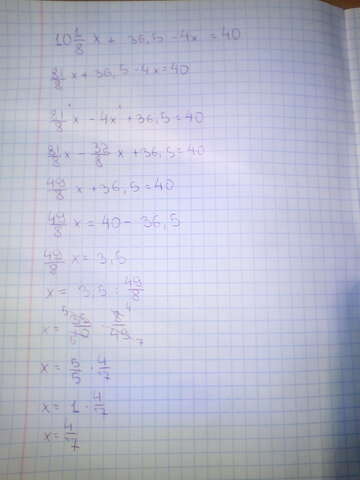 10 1/8 x + 36,5 - 4x = 40
81/8 x + 36,5 - 4x = 40
81/8 x - 4x + 36,5 = 40
81/8 x - 32/8 x + 36,5 = 40
49/8 x + 36,5 = 40
49/8 x = 40 - 36,5
49/8 x = 3,5
x = 3,5 : 49/8
x = 35/10 · 8/49
x = 5/5 · 4/7
x = 1 · 4/7
x = 4/7